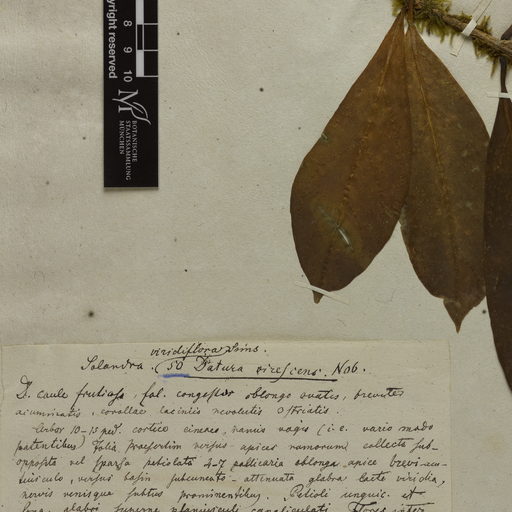 copyright reserved
8 9 10
BOTANISCHE
STAATSSAMMLUNG
MÜNCHEN
viridiflora Sims.
Solandra. (50 Datura virescens. Nob.
D. caule fruticoso, fol. congestis oblongo ovatis, breviter
acuminatis, corollae laciniis revolutis
Arbor 10-15 ped. cortice cinereo, ramis vagis (i.e. vario modo
patentibus) folia praesertim versus apices ramorum collecta sub-
opposita vel sparsa petiolata 4-7 pollicaria oblonga apice brevi-acu-
versus basin attenuata glabra laete viridia,
nervis venisque subtus prominentibus. Petioli unguic. et
superne planiusculi canaliculati. Flores inter